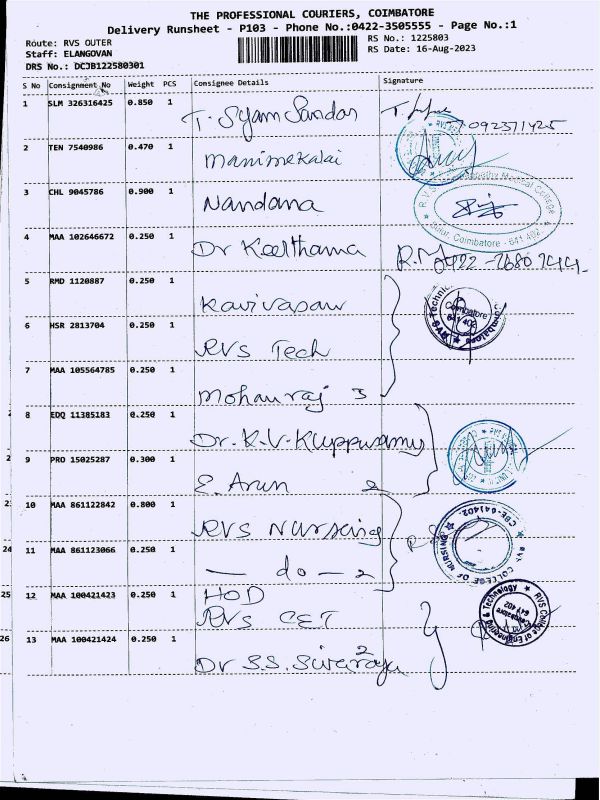 THE PROFESSIONAL COURIERS, COIMBATORE
Delivery Runsheet - P103 - Phone No.:0422-3505555 - Page No.:1
Route: RVS OUTER
RS No.: 1225803
Staff: ELANGOVAN
RS Date: 16-Aug-2023
DRS No.: DCJB122580301
S No Consignment No Weight PCS Consignee Details Signature
1 SLM 326316425 0.850 1 T. Syam Sundar
2 TEN 7540986 0.470 1 Manimekalai
3 CHL 9045786 0.900 1 Nandana
4 MAA 102646672 0.250 1 Dr Keerthana
5 RMD 1120887 0.250 1
6 HSR 2813704 0.250 1 RVS Tech
7 MAA 105564785 1 Mohanraj 3
8 EDQ 11385183 0.250 1 Dr. K.V. Kuppusamy
9 PRO 15025287 0.300 1 E. Arun 2
23 10 MAA 861122842 0.800 1 RVS Nursing
24 11 MAA 861123066 0.250 1 — do — 2
25 12 MAA 100421423 0.250 1 HOD
RVS CET
26 13 MAA 100421424 0.250 1 Dr S.S. Sivaraju 2
Sulur, Coimbatore - 641 402
Coimbatore
641 402
CBE-641402
RVS College of Engineering & Technology
Coimbatore
641 402